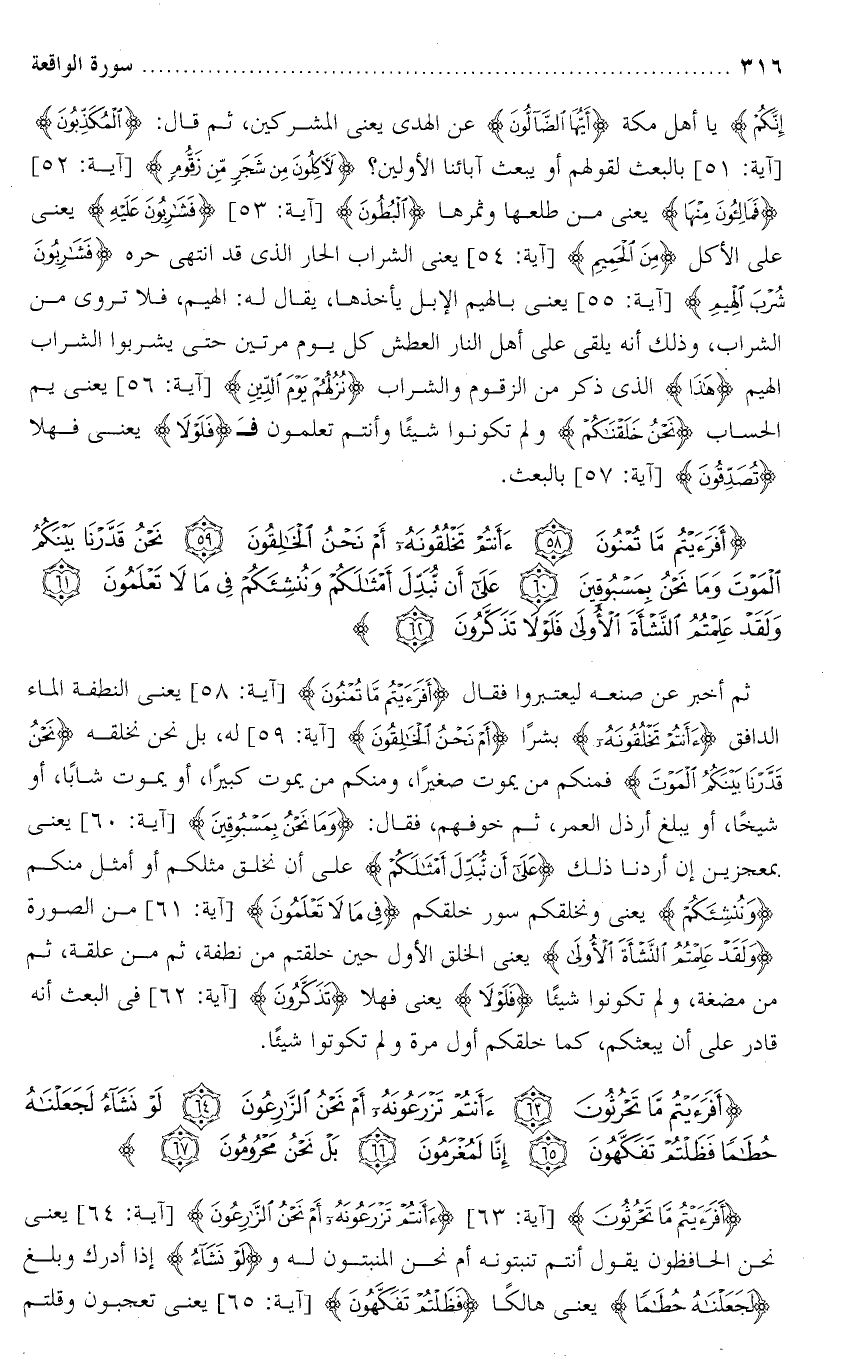 ٣١٦ ........................................................................ سورة الواقعة
إِنَّكُمْ﴾ يا أهل مكة ﴿أَيُّهَا ٱلضَّآلُّونَ﴾ عن الهدى يعنى المشركين، ثم قال: ﴿ٱلْمُكَذِّبُونَ﴾
[آية: ٥١] بالبعث لقولهم أو يبعث آبائنا الأولين؟ ﴿لَآكِلُونَ مِن شَجَرٍ مِّن زَقُّومٍ﴾ [آية: ٥٢]
﴿فَمَالِـُٔونَ مِنْهَا﴾ يعنى من طلعها وثمرها ﴿ٱلْبُطُونَ﴾ [آية: ٥٣] ﴿فَشَٰرِبُونَ عَلَيْهِ﴾ يعنى
على الأكل ﴿مِنَ ٱلْحَمِيمِ﴾ [آية: ٥٤] يعنى الشراب الحار الذى قد انتهى حره ﴿فَشَٰرِبُونَ
شُرْبَ ٱلْهِيمِ﴾ [آية: ٥٥] يعنى بالهيم الإبل يأخذها، يقال له: الهيم، فلا تروى من
الشراب، وذلك أنه يلقى على أهل النار العطش كل يوم مرتين حتى يشربوا الشراب
الهيم ﴿هَٰذَا﴾ الذى ذكر من الزقوم والشراب ﴿نُزُلُهُمْ يَوْمَ ٱلدِّينِ﴾ [آية: ٥٦] يعنى يم
الحساب ﴿نَحْنُ خَلَقْنَٰكُمْ﴾ ولم تكونوا شيئًا وأنتم تعلمون فـَ﴿فَلَوْلَا﴾ يعنى فهلا
﴿تُصَدِّقُونَ﴾ [آية: ٥٧] بالبعث.
﴿أَفَرَءَيْتُم مَّا تُمْنُونَ ٥٨ ءَأَنتُمْ تَخْلُقُونَهُۥٓ أَمْ نَحْنُ ٱلْخَٰلِقُونَ ٥٩ نَحْنُ قَدَّرْنَا بَيْنَكُمُ
ٱلْمَوْتَ وَمَا نَحْنُ بِمَسْبُوقِينَ ٦٠ عَلَىٰٓ أَن نُّبَدِّلَ أَمْثَٰلَكُمْ وَنُنشِئَكُمْ فِى مَا لَا تَعْلَمُونَ ٦١
وَلَقَدْ عَلِمْتُمُ ٱلنَّشْأَةَ ٱلْأُولَىٰ فَلَوْلَا تَذَكَّرُونَ ٦٢﴾
ثم أخبر عن صنعه ليعتبروا فقال ﴿أَفَرَءَيْتُم مَّا تُمْنُونَ﴾ [آية: ٥٨] يعنى النطفة الماء
الدافق ﴿ءَأَنتُمْ تَخْلُقُونَهُۥٓ﴾ بشرًا ﴿أَمْ نَحْنُ ٱلْخَٰلِقُونَ﴾ [آية: ٥٩] له، بل نحن نخلقه ﴿نَحْنُ
قَدَّرْنَا بَيْنَكُمُ ٱلْمَوْتَ﴾ فمنكم من يموت صغيرًا، ومنكم من يموت كبيرًا، أو يموت شابًا، أو
شيخًا، أو يبلغ أرذل العمر، ثم خوفهم، فقال: ﴿وَمَا نَحْنُ بِمَسْبُوقِينَ﴾ [آية: ٦٠] يعنى
بمعجزين إن أردنا ذلك ﴿عَلَىٰٓ أَن نُّبَدِّلَ أَمْثَٰلَكُمْ﴾ على أن نخلق مثلكم أو أمثل منكم
﴿وَنُنشِئَكُمْ﴾ يعنى ونخلقكم سور خلقكم ﴿فِى مَا لَا تَعْلَمُونَ﴾ [آية: ٦١] من الصورة
﴿وَلَقَدْ عَلِمْتُمُ ٱلنَّشْأَةَ ٱلْأُولَىٰ﴾ يعنى الخلق الأول حين خلقتم من نطفة، ثم من علقة، ثم
من مضغة، ولم تكونوا شيئًا ﴿فَلَوْلَا﴾ يعنى فهلا ﴿تَذَكَّرُونَ﴾ [آية: ٦٢] فى البعث أنه
قادر على أن يبعثكم، كما خلقكم أول مرة ولم تكوتوا شيئًا.
﴿أَفَرَءَيْتُم مَّا تَحْرُثُونَ ٦٣ ءَأَنتُمْ تَزْرَعُونَهُۥٓ أَمْ نَحْنُ ٱلزَّٰرِعُونَ ٦٤ لَوْ نَشَآءُ لَجَعَلْنَٰهُ
حُطَٰمًا فَظَلْتُمْ تَفَكَّهُونَ ٦٥ إِنَّا لَمُغْرَمُونَ ٦٦ بَلْ نَحْنُ مَحْرُومُونَ ٦٧﴾
﴿أَفَرَءَيْتُم مَّا تَحْرُثُونَ﴾ [آية: ٦٣] ﴿ءَأَنتُمْ تَزْرَعُونَهُۥٓ أَمْ نَحْنُ ٱلزَّٰرِعُونَ﴾ [آية: ٦٤] يعنى
نحن الحافظون يقول أنتم تنبتونه أم نحن المنبتون له و﴿لَوْ نَشَآءُ﴾ إذا أدرك وبلغ
﴿لَجَعَلْنَٰهُ حُطَٰمًا﴾ يعنى هالكًا ﴿فَظَلْتُمْ تَفَكَّهُونَ﴾ [آية: ٦٥] يعنى تعجبون وقلتم